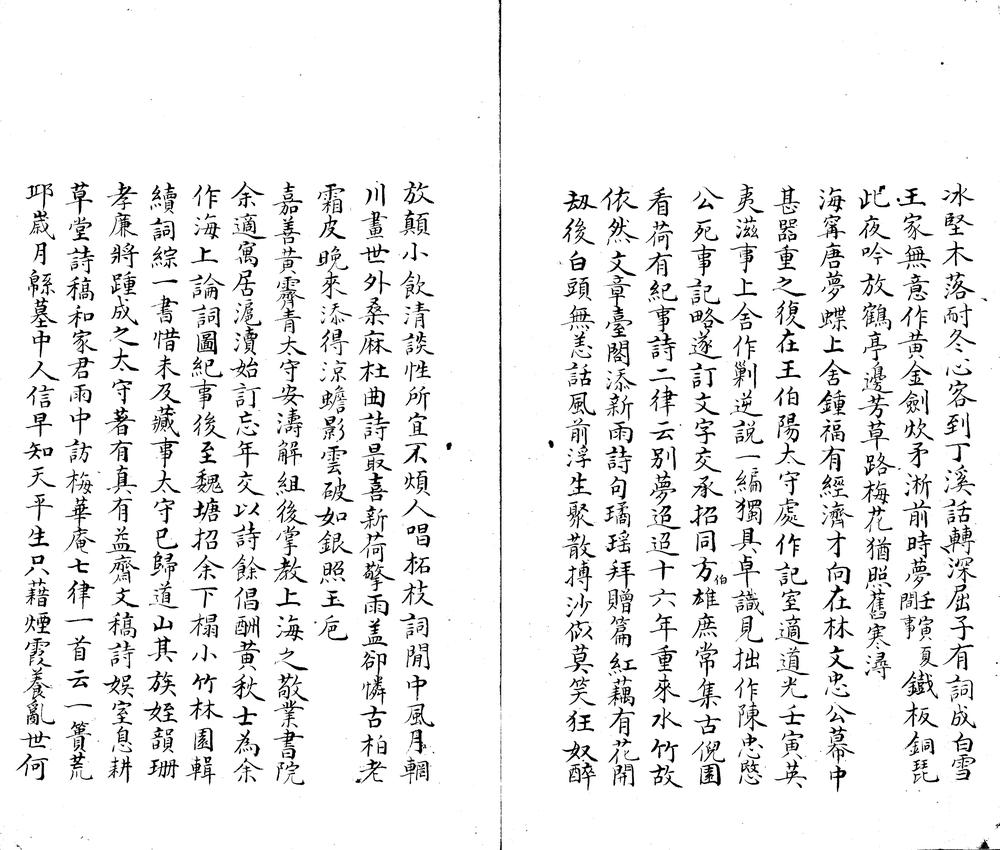 冰堅木落耐冬心客到丁溪話轉深屈子有詞成白雪
王家無意作黃金劍炊矛淅前時夢壬寅夏間事鐵板銅琵
此夜吟放鶴亭邊芳草路梅花猶照舊寒潯
海寗唐夢蝶上舍鍾福有經濟才向在林文忠公幕中
甚器重之復在王伯陽太守處作記室適道光壬寅英
夷滋事上舍作剿逆說一編獨具卓識見拙作陳忠愍
公死事記略遂訂文字交承招同方伯雄庶常集古倪園
看荷有紀事詩二律云別夢迢迢十六年重來水竹故
依然文章臺閣添新雨詩句璚瑤拜贈篇紅藕有花開
劫後白頭無恙話風前浮生聚散摶沙似莫笑狂奴醉
放顛小飲清談性所宜不煩人唱柘枝詞閒中風月輞
川畫世外桑麻杜曲詩最喜新荷擎雨盖卻憐古柏老
霜皮晚來添得涼蟾影雲破如銀照玉卮
嘉善黃霽青太守安濤解組後掌教上海之敬業書院
余適寓居滬瀆始訂忘年交以詩餘倡酬黃秋士為余
作海上論詞圖紀事後至魏塘招余下榻小竹林園輯
續詞綜一書惜未及藏事太守已歸道山其族姪韻珊
孝廉將踵成之太守著有真有益齋文稿詩娛室息耕
草堂詩稿和家君雨中訪梅華庵七律一首云一簣荒
邱歲月緜墓中人信早知天平生只藉煙霞養亂世何